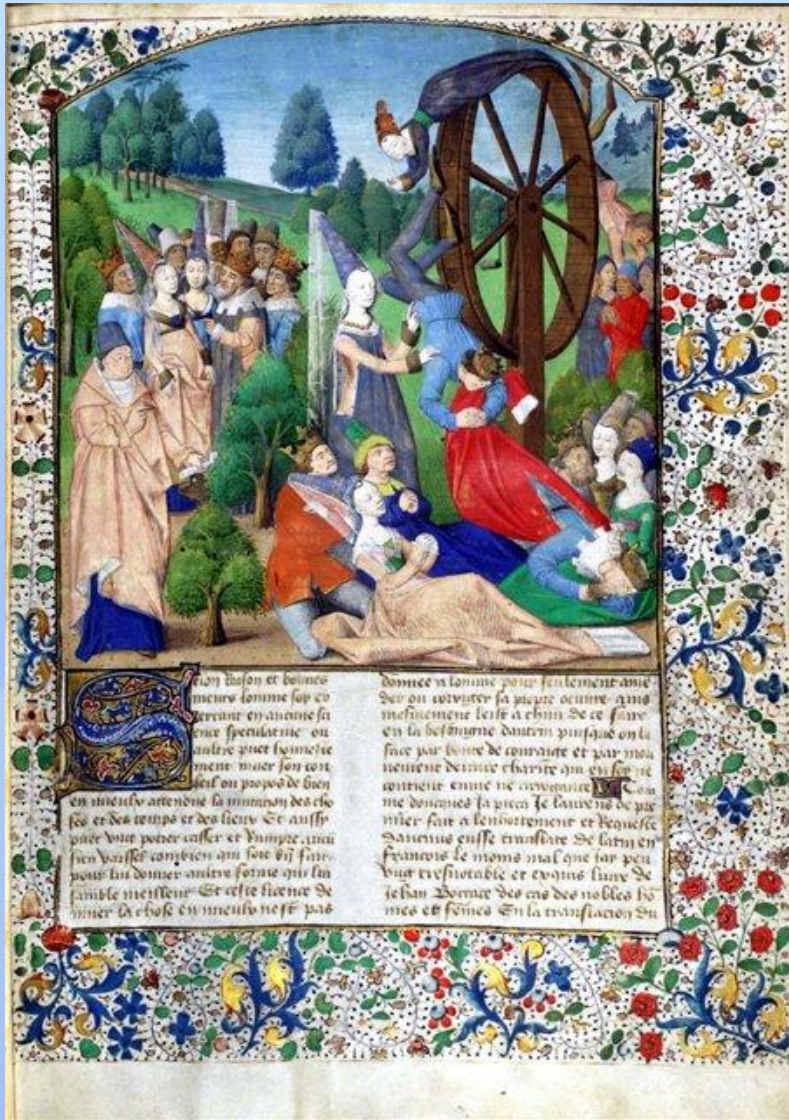 Selon raison et bonnes
meurs lomme soy ex
ercant en aucune sci
ence speculative ou
aultre puet honneste
ment muer son con
seil ou propos de bien
en mieulx attendue la mutacion des cho
ses et des temps et des lieux Et aussy
puet ung potier casser et rompre aucun
sien vaissel combien qui soit bien fait
pour lui donner aultre forme qui lui
samble meilleur Et ceste licence de
muer la chose en mieulx nest pas
donnee a lomme pour seulement amen
der ou corriger sa propre oeuvre mais
mesmement leist a chun de ce faire
en la besoingne dautrui puisque on le
face par bonte de couraige et par mou
vement de vraye charite qui en soy ne
contient envie ne arrogance Com
me doncques ja pieca Je laurens de pre
mier fait a lenhortement et Requeste
daucuns eusse translate de latin en
francois le moins mal que jay peu
ung tresnotable et exquis livre de
Jehan Boccace des cas des nobles ho
mes et femes En la translacion du